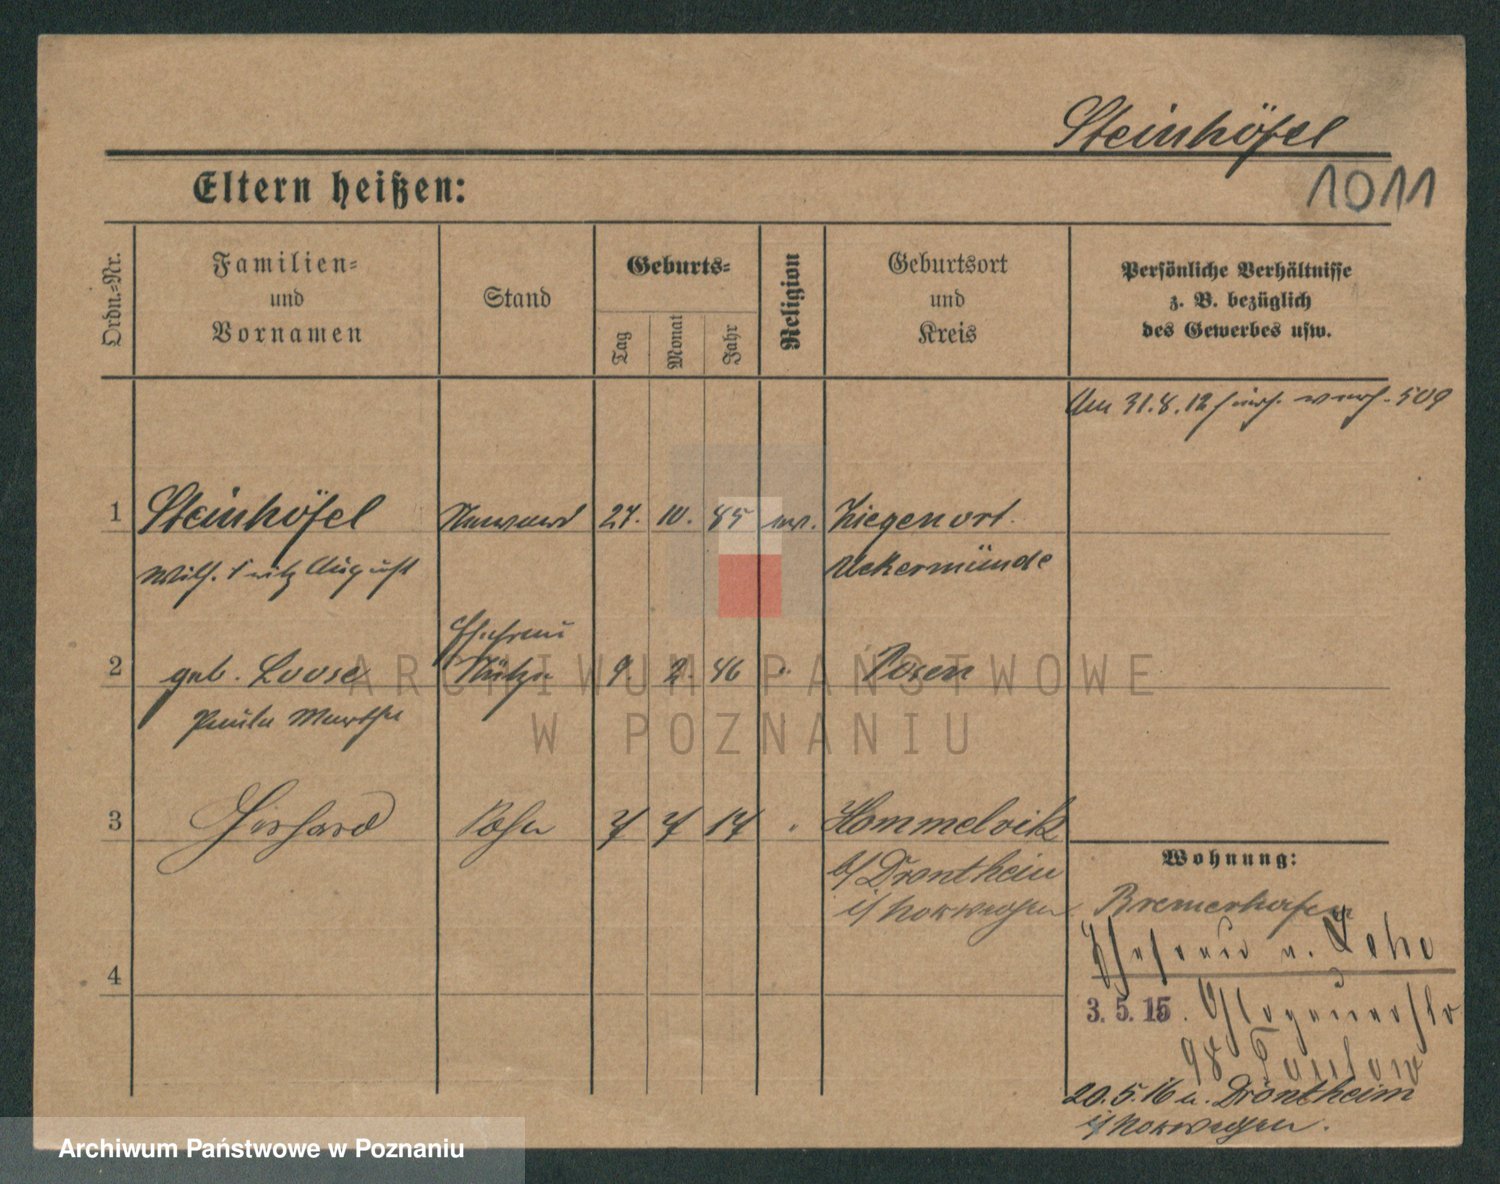 Steinhöfel
1011
Eltern heißen:
Ordn.-Nr.
Familien-
und
Vornamen
Stand
Geburts-
Tag
Monat
Jahr
Religion
Geburtsort
und
Kreis
Persönliche Verhältnisse
z. B. bezüglich
des Gewerbes usw.
Am 31.8.12 509
1 Steinhöfel 27. 10. 85 ev. Ziegenort.
Wilh. Fritz August Ueckermünde
Ehefrau
2 geb. Loose 9. 2. 86 " Posen
Paula Martha
3 Gerhard Sohn 3/ 3/ 14 " Hommelvik
b/ Drontheim
i/ Norwegen
4
Wohnung:
Bremerhafen
Ehefrau n. Lehe
3. 5. 15. Glogauerstr
98
20.5.16 n. Drontheim
i/ Norwegen.
ARCHIWUM PAŃSTWOWE
W POZNANIU
Archiwum Państwowe w Poznaniu